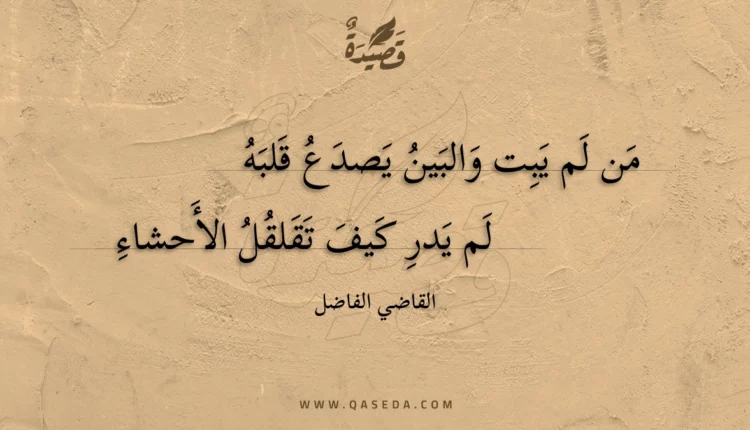 قَصِيدَةٌ
مَن لَم يَبِت وَالبَينُ يَصدَعُ قَلبَهُ
لَم يَدرِ كَيفَ تَقَلقُلُ الأَحشاءِ
القاضي الفاضل
WWW.QASEDA.COM